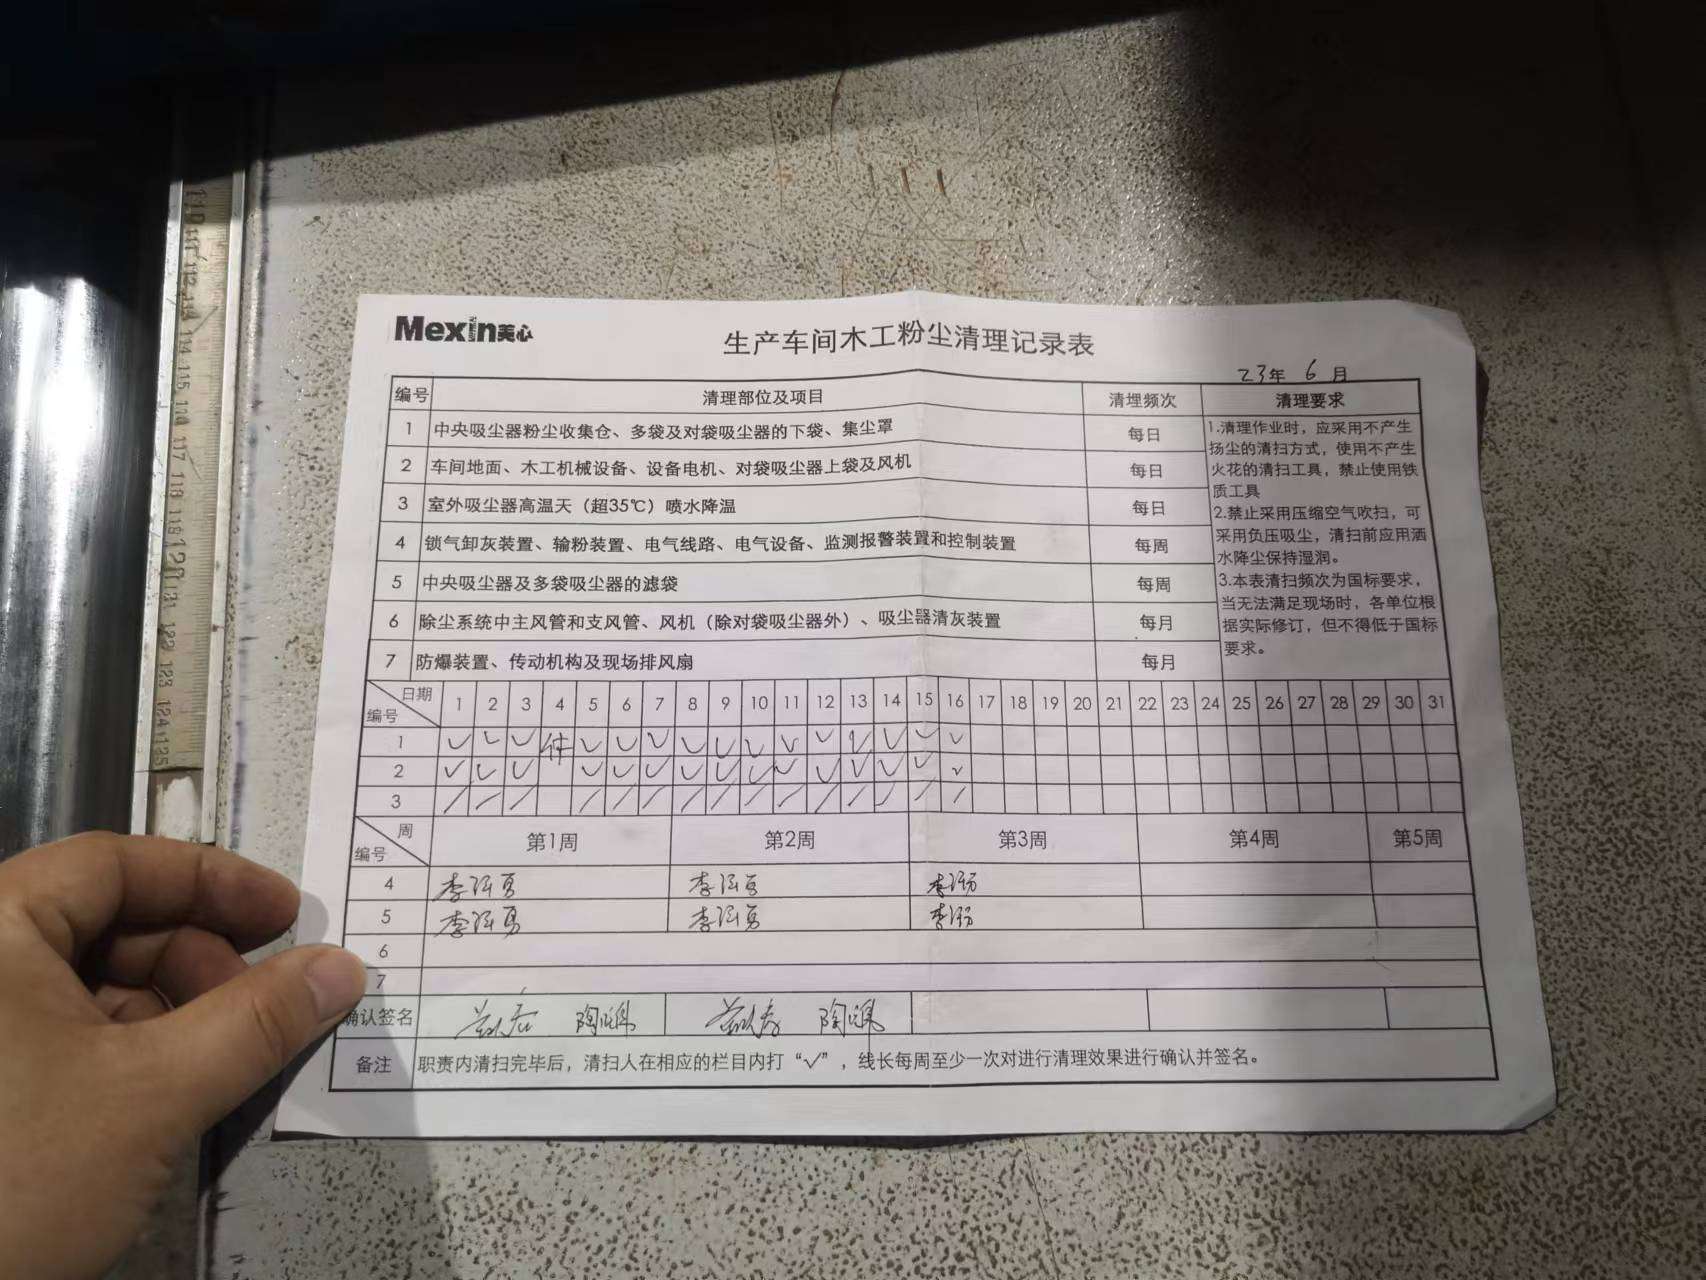 Mexin美心
生产车间木工粉尘清理记录表
23年 6 月
编号 清理部位及项目 清理频次 清理要求
1 中央吸尘器粉尘收集仓、多袋及对袋吸尘器的下袋、集尘罩 每日
2 车间地面、木工机械设备、设备电机、对袋吸尘器上袋及风机 每日
3 室外吸尘器高温天（超35℃）喷水降温 每日
4 锁气卸灰装置、输粉装置、电气线路、电气设备、监测报警装置和控制装置 每周
5 中央吸尘器及多袋吸尘器的滤袋 每周
6 除尘系统中主风管和支风管、风机（除对袋吸尘器外）、吸尘器清灰装置 每月
7 防爆装置、传动机构及现场排风扇 每月
1.清理作业时，应采用不产生
扬尘的清扫方式，使用不产生
火花的清扫工具，禁止使用铁
质工具
2.禁止采用压缩空气吹扫，可
采用负压吸尘，清扫前应用洒
水降尘保持湿润。
3.本表清扫频次为国标要求，
当无法满足现场时，各单位根
据实际修订，但不得低于国标
要求。
日期 编号 1 2 3 4 5 6 7 8 9 10 11 12 13 14 15 16 17 18 19 20 21 22 23 24 25 26 27 28 29 30 31
1 ✓ ✓ ✓ ✓ ✓ ✓ ✓ ✓ ✓ ✓ ✓ ✓ ✓ ✓ ✓
2 ✓ ✓ ✓ ✓ ✓ ✓ ✓ ✓ ✓ ✓ ✓ ✓ ✓ ✓ ✓
3 / / / / / / / / / / / / / / /
周 编号 第1周 第2周 第3周 第4周 第5周
4 李 李 李
5 李 李 李
6
7
确认签名
备注 职责内清扫完毕后，清扫人在相应的栏目内打“✓”，线长每周至少一次对进行清理效果进行确认并签名。
110 111 112 113 114 115 116 117 118 119 120 121 122 123 124 125